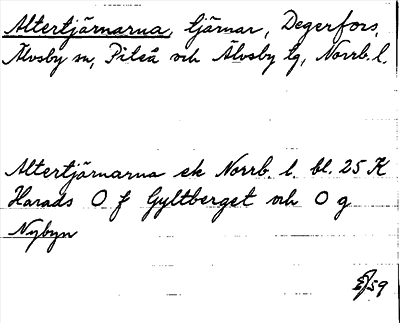 Altertjärnarna, tjärnar, Degerfors,
Älvsby sn, Piteå och Älvsby tg, Norrb. l.
Altertjärnarna ek Norrb. l. bl. 25 K
Harads O f Gyltberget och O g
Nybyn
/59